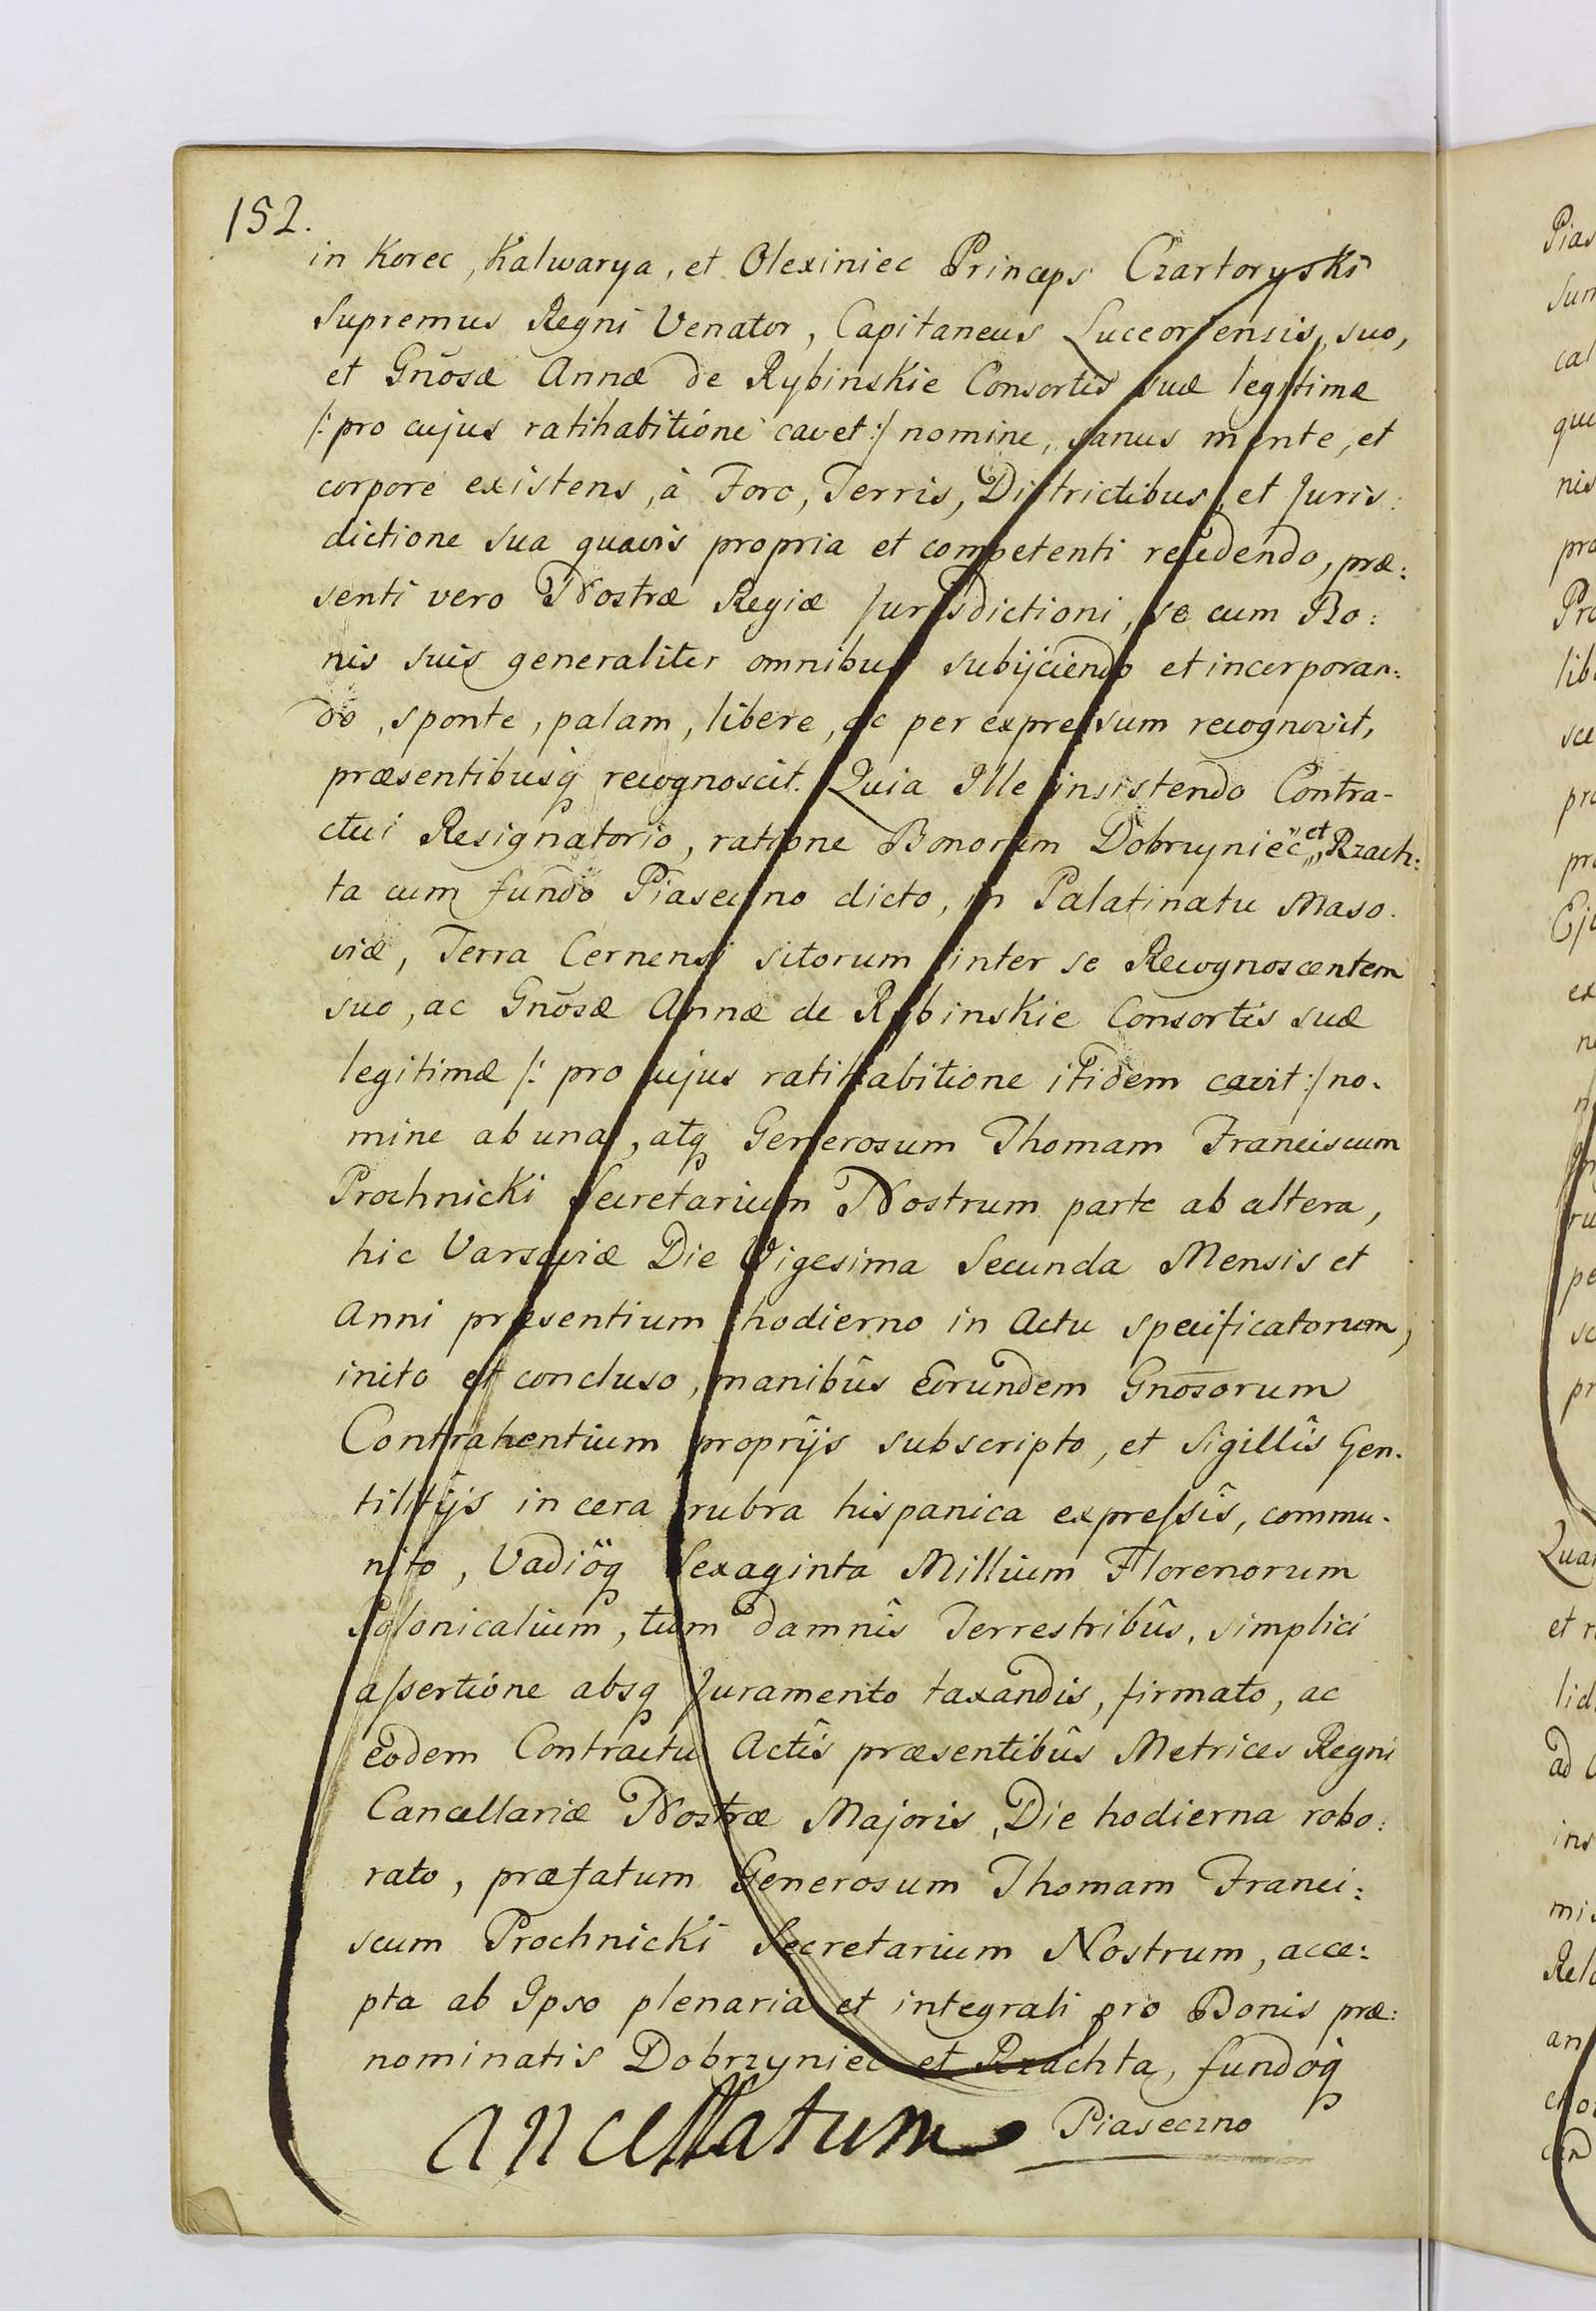 152.
in Korec, Kalwarya, et Olexiniec Princeps Czartoryski
Supremus Regni Venator, Capitaneus Luceoriensis, suo,
et Gnõsæ Annæ de Rybinskie Consortis suæ legitimæ
/: pro cujus ratihabitione cavet :/ nomine, sanus mente, et
corpore existens, à Foro, Terris, Districtibus, et Juris:
dictione sua quavis propria et competenti recedendo, præ:
senti vero Nostræ Regiæ Jurisdictioni, se cum Bo:
nis suis generaliter omnibus subijciendo et incorporan:
do, sponte, palam, libere, ac per expressum recognovit,
præsentibusq recognoscit. Quia Ille insistendo Contra-
ctui Resignatorio, ratione Bonorum Dobrzyniec et Rzach:
ta cum fundo Piaseczno dicto, in Palatinatu Maso.
viæ, Terra Cernensi sitorum inter se Recognoscentem
suo, ac Gnõsæ Annæ de Rybinskie Consortis suæ
legitimæ /: pro cujus ratihabitione itidem cavit :/ no-
mine ab una, atq Generosum Thomam Franciscum
Prochnicki Secretarium Nostrum parte ab altera,
hic Varsaviæ Die Vigesima Secunda Mensis et
Anni præsentium hodierno in Actu specificatorum,
inito et concluso, manibûs eorundem Gnõsorum
Contrahentium proprijs subscripto, et Sigillîs Gen-
tilitijs in cera rubra hispanica expressîs, commu-
nito, Vadiöq Sexaginta Millium Florenorum
Polonicalium, tum damnîs Terrestribûs, simplici
assertione absq Juramento taxandis, firmato, ac
eodem Contractu Actîs præsentibûs Metrices Regni
Cancellariæ Nostræ Majoris, Die hodierna robo:
rato, præfatum Generosum Thomam Franci:
scum Prochnicki Secretarium Nostrum, acce:
pta ab Ipso plenaria et integrali pro Bonis præ:
nominatis Dobrzyniec et Rzachta, fundoq
Cancellatum Piaseczno